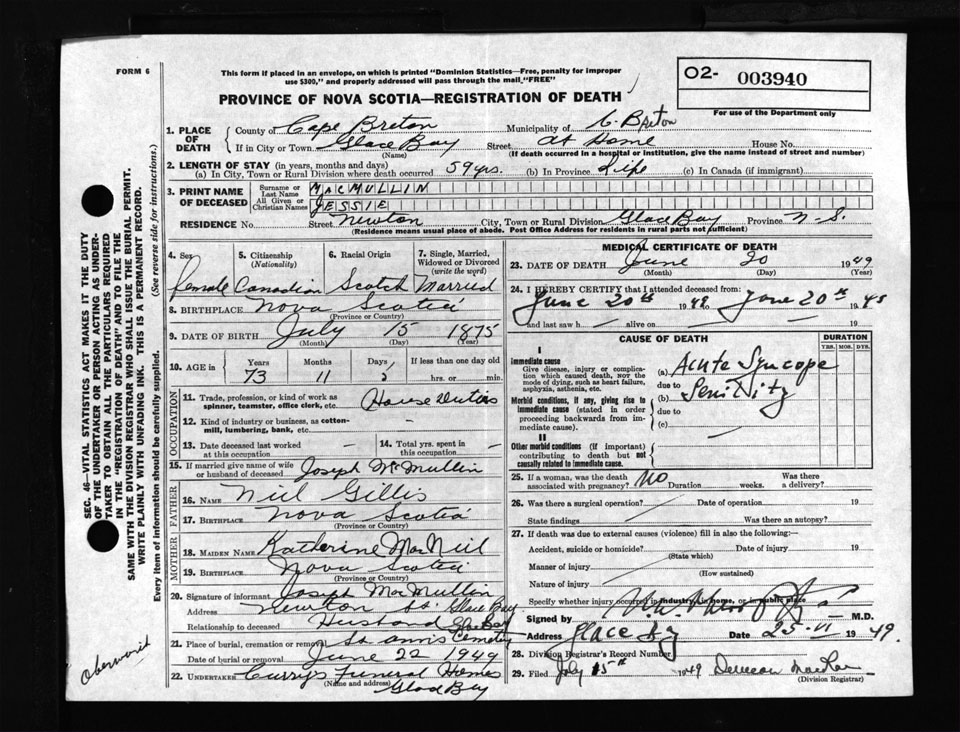 FORM 6
This form if placed in an envelope, on which is printed "Dominion Statistics—Free, penalty for improper
use $300," and properly addressed will pass through the mail "FREE"
O2- 003940
For use of the Department only
PROVINCE OF NOVA SCOTIA—REGISTRATION OF DEATH
1. PLACE OF DEATH { County of Cape Breton Municipality of C. Breton
If in City or Town Glace Bay Street at Home House No.
(Name) (If death occurred in a hospital or institution, give the name instead of street and number)
2. LENGTH OF STAY (in years, months and days)
(a) In City, Town or Rural Division where death occurred 59 yrs. (b) In Province Life (c) In Canada (if immigrant)
3. PRINT NAME OF DECEASED { Surname or Last Name MACMULLIN
All Given or Christian Names JESSIE
RESIDENCE No. Street Newton City, Town or Rural Division Glace Bay Province N-S.
(Residence means usual place of abode. Post Office Address for residents in rural parts not sufficient)
4. Sex Female
5. Citizenship (Nationality) Canadian
6. Racial Origin Scotch
7. Single, Married, Widowed or Divorced (write the word) Married
8. BIRTHPLACE Nova Scotia
(Province or Country)
9. DATE OF BIRTH July 15 1875
(Month) (Day) (Year)
10. AGE in { Years Months Days If less than one day old
73 11 hrs. or min.
OCCUPATION
11. Trade, profession, or kind of work as spinner, teamster, office clerk, etc. House Duties
12. Kind of industry or business, as cotton-mill, lumbering, bank, etc. —
13. Date deceased last worked at this occupation —
14. Total yrs. spent in this occupation —
15. If married give name of wife or husband of deceased Joseph McMullin
FATHER
16. NAME Neil Gillis
17. BIRTHPLACE Nova Scotia
(Province or Country)
MOTHER
18. MAIDEN NAME Katherine MacNeil
19. BIRTHPLACE Nova Scotia
(Province or Country)
20. Signature of informant Joseph MacMullin
Address Newton St. Glace Bay
Relationship to deceased Husband Glace Bay
21. Place of burial, cremation or removal St. Ann's Cemetery
Date of burial or removal June 22 1949
22. UNDERTAKER Curry's Funeral Homes
(Name and address) Glace Bay
MEDICAL CERTIFICATE OF DEATH
23. DATE OF DEATH June 20 1949
(Month) (Day) (Year)
24. I HEREBY CERTIFY that I attended deceased from:
June 20th 1949 to June 20th 19
and last saw h — alive on — 19
CAUSE OF DEATH
DURATION
YRS. MOS. DYS.
I
Immediate cause
Give disease, injury or complication which caused death, not the mode of dying, such as heart failure, asphyxia, asthenia, etc.
(a) Acute Syncope
due to
Morbid conditions, if any, giving rise to immediate cause (stated in order proceeding backwards from immediate cause).
(b) Senility
due to
(c) —
II
Other morbid conditions (if important) contributing to death but not causally related to immediate cause.
25. If a woman, was the death associated with pregnancy? No Duration weeks. Was there a delivery?
26. Was there a surgical operation? Date of operation 19
State findings Was there an autopsy?
27. If death was due to external causes (violence) fill in also the following:—
Accident, suicide or homicide? Date of injury 19
(State which)
Manner of injury
(How sustained)
Nature of injury
Specify whether injury occurred in industry, in home, or in public place
Signed by M.D.
Address Glace Bay Date 25-VI 1949.
28. Division Registrar's Record Number
29. Filed July 15th 1949 Duncan MacRae
(Division Registrar)
SEC. 46—VITAL STATISTICS ACT MAKES IT THE DUTY
OF THE UNDERTAKER OR PERSON ACTING AS UNDER-
TAKER TO OBTAIN ALL THE PARTICULARS REQUIRED
IN THE "REGISTRATION OF DEATH" AND TO FILE THE
SAME WITH THE DIVISION REGISTRAR WHO SHALL ISSUE THE BURIAL PERMIT.
WRITE PLAINLY WITH UNFADING INK. THIS IS A PERMANENT RECORD.
Every item of information should be carefully supplied. (See reverse side for instructions.)